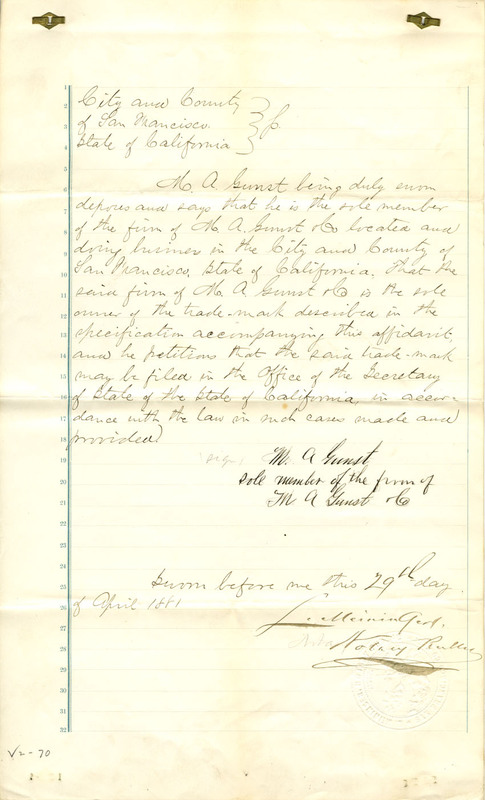 City and County
of San Francisco
State of California
M. A. Gunst being duly sworn
deposes and says that he is the sole member
of the firm of M. A. Gunst & Co located and
doing business in the City and County of
San Francisco, State of California. That the
said firm of M. A. Gunst & Co is the sole
owner of the trade-mark described in the
specification accompanying this affidavit,
and he petitions that the said trade-mark
may be filed in the Office of the Secretary
of State of the State of California, in accor-
dance with the law in such cases made and
provided
M. A Gunst
sole member of the firm of
M A Gunst & Co
Sworn before me this 29th day
of April 1881
Notary Public
V2-70
1
2
3
4
5
6
7
8
9
10
11
12
13
14
15
16
17
18
19
20
21
22
23
24
25
26
27
28
29
30
31
32